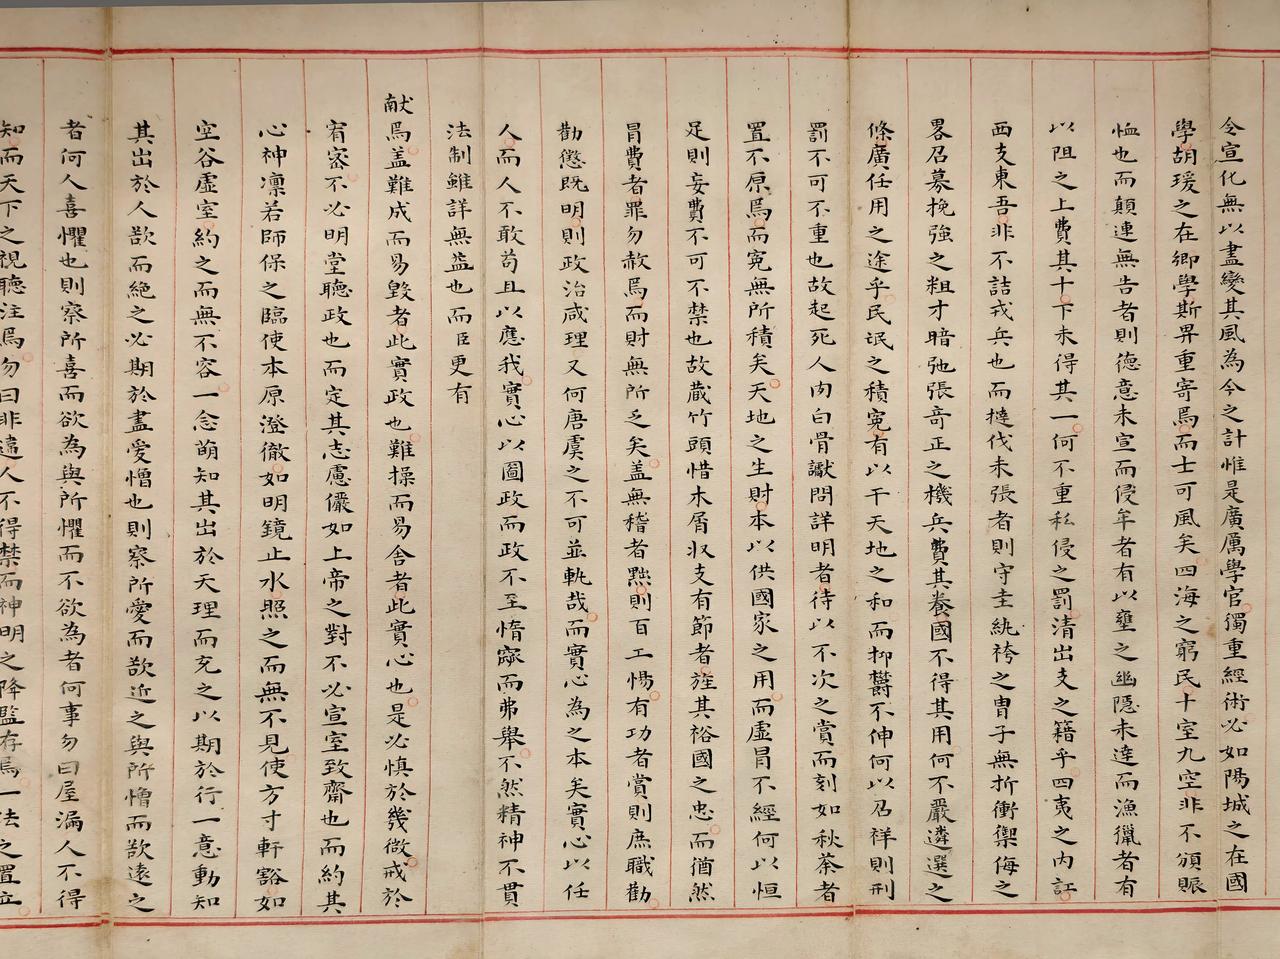 令宣化無以盡變其風為今之計惟是廣厲學官獨重經術必如陽城之在國
學胡瑗之在鄉學斯畀重寄焉而士可風矣四海之窮民十室九空非不頒賑
恤也而顛連無告者則德意未宣而侵牟者有以壅之幽隱未達而漁獵者有
以阻之上費其十下未得其一何不重私侵之罰清出支之籍乎四夷之內訌
西支東吾非不詰戎兵也而撻伐未張者則守圭紈袴之冑子無折衝禦侮之
畧召募挽強之粗才暗弛張奇正之機兵費其養國不得其用何不嚴遴選之
條廣任用之途乎民氓之積寃有以干天地之和而抑欝不伸何以召祥則刑
罰不可不重也故起死人肉白骨讞問詳明者待以不次之賞而刻如秋荼者
置不原焉而寃無所積矣天地之生財本以供國家之用而虛冒不經何以恒
足則妄費不可不禁也故藏竹頭惜木屑収支有節者旌其裕國之忠而猶然
冒費者罪勿赦焉而財無所乏矣盖無稽者黜則百工惕有功者賞則庶職勸
勸懲既明則政治咸理又何唐虞之不可並軌哉而實心為之本矣實心以任
人而人不敢苟且以應我實心以圖政而政不至惰窳而弗舉不然精神不貫
法制雖詳無益也而臣更有
献焉盖難成而易毀者此實政也難操而易舍者此實心也是必慎於幾微戒於
宥密不必明堂聽政也而定其志慮儼如上帝之對不必宣室致齋也而約其
心神凛若師保之臨使本原澄徹如明鏡止水照之而無不見使方寸軒豁如
空谷虛室約之而無不容一念萌知其出於天理而充之以期於行一意動知
其出於人欲而絕之必期於盡愛憎也則察所愛而欲近之與所憎而欲遠之
者何人喜懼也則察所喜而欲為與所懼而不欲為者何事勿曰屋漏人不得
知而天下之視聽注焉勿曰非遠人不得禁而神明之降監存焉一法之置立